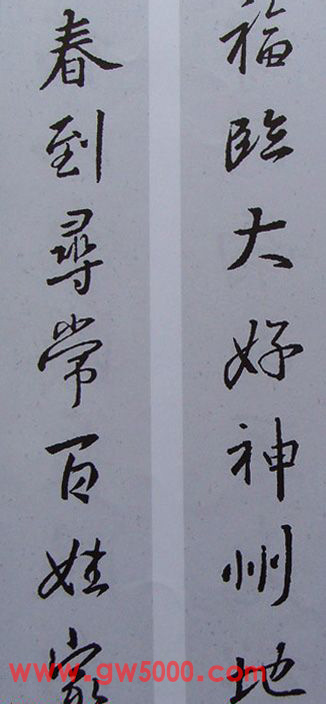 福臨大好神州地
春到尋常百姓家
www.gw5000.com